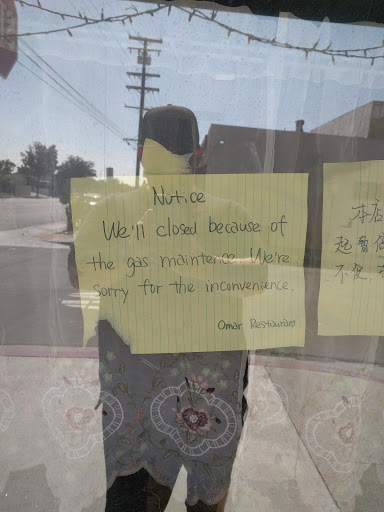 Notice
We'll closed because of
the gas maintence. We're
sorry for the inconvenience.
Omar Restaurant
本店
起暫停
不便,